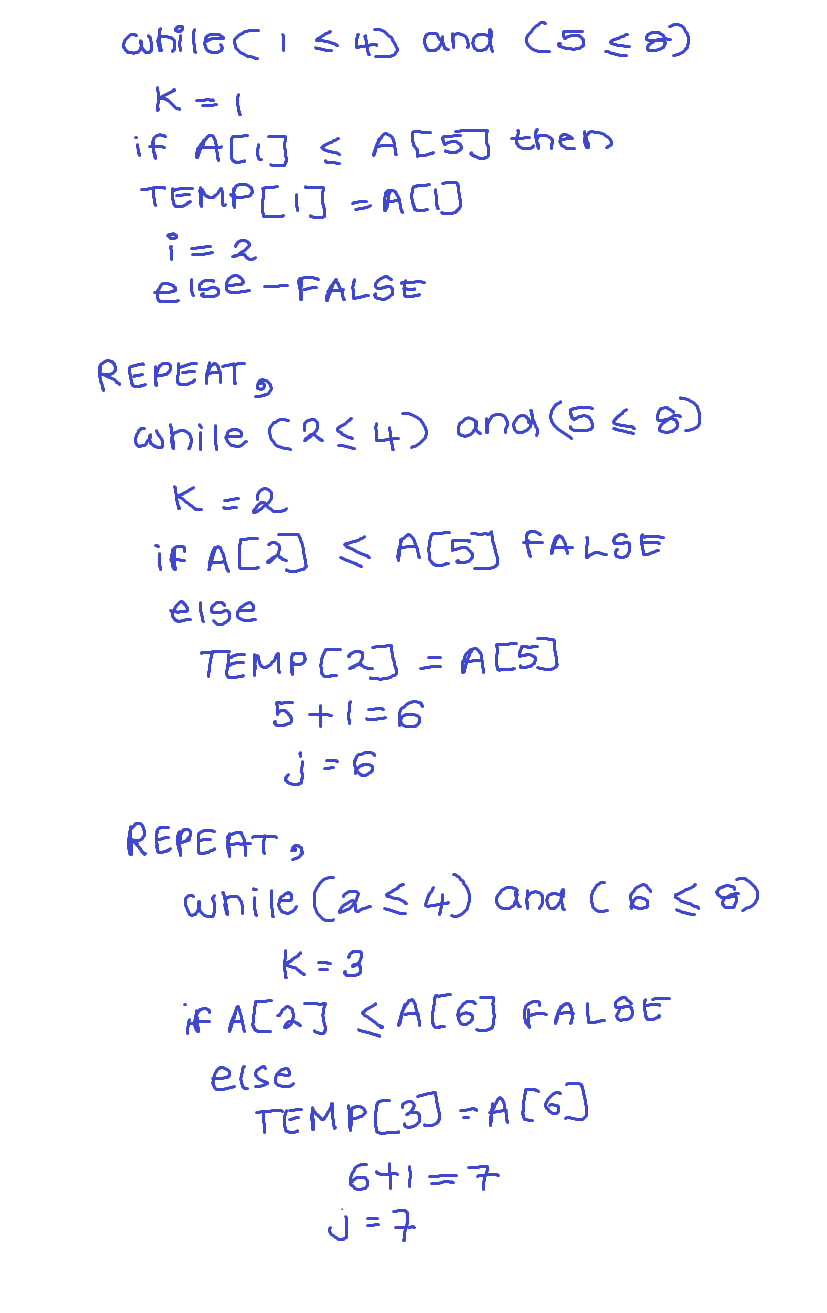 while( 1 ≤ 4) and (5 ≤ 8)
K = 1
if A[1] ≤ A[5] then
TEMP[1] = A[1]
i = 2
else - FALSE
REPEAT,
while (2 ≤ 4) and (5 ≤ 8)
K = 2
if A[2] ≤ A[5] FALSE
else
TEMP[2] = A[5]
5 + 1 = 6
j = 6
REPEAT,
while (2 ≤ 4) and ( 6 ≤ 8)
K = 3
if A[2] ≤ A[6] FALSE
else
TEMP[3] = A[6]
6+1 = 7
j = 7